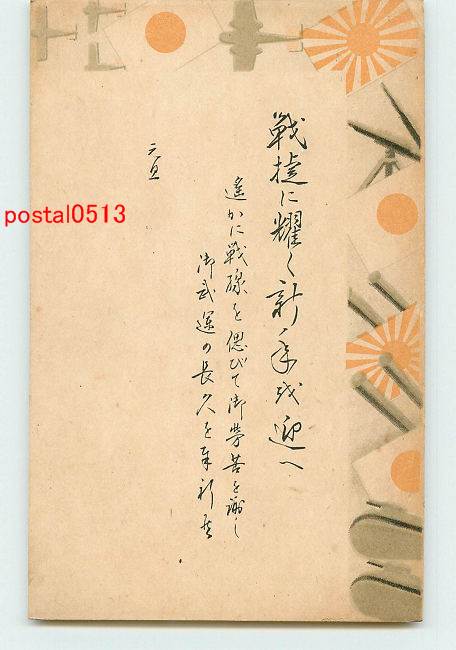 戦捷に耀く新年を迎へ
遙かに戦線を偲びて御労苦を謝し
御武運の長久を奉祈候
元旦
postal0513